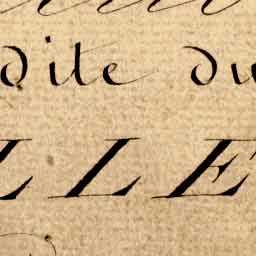 dite du
LLE